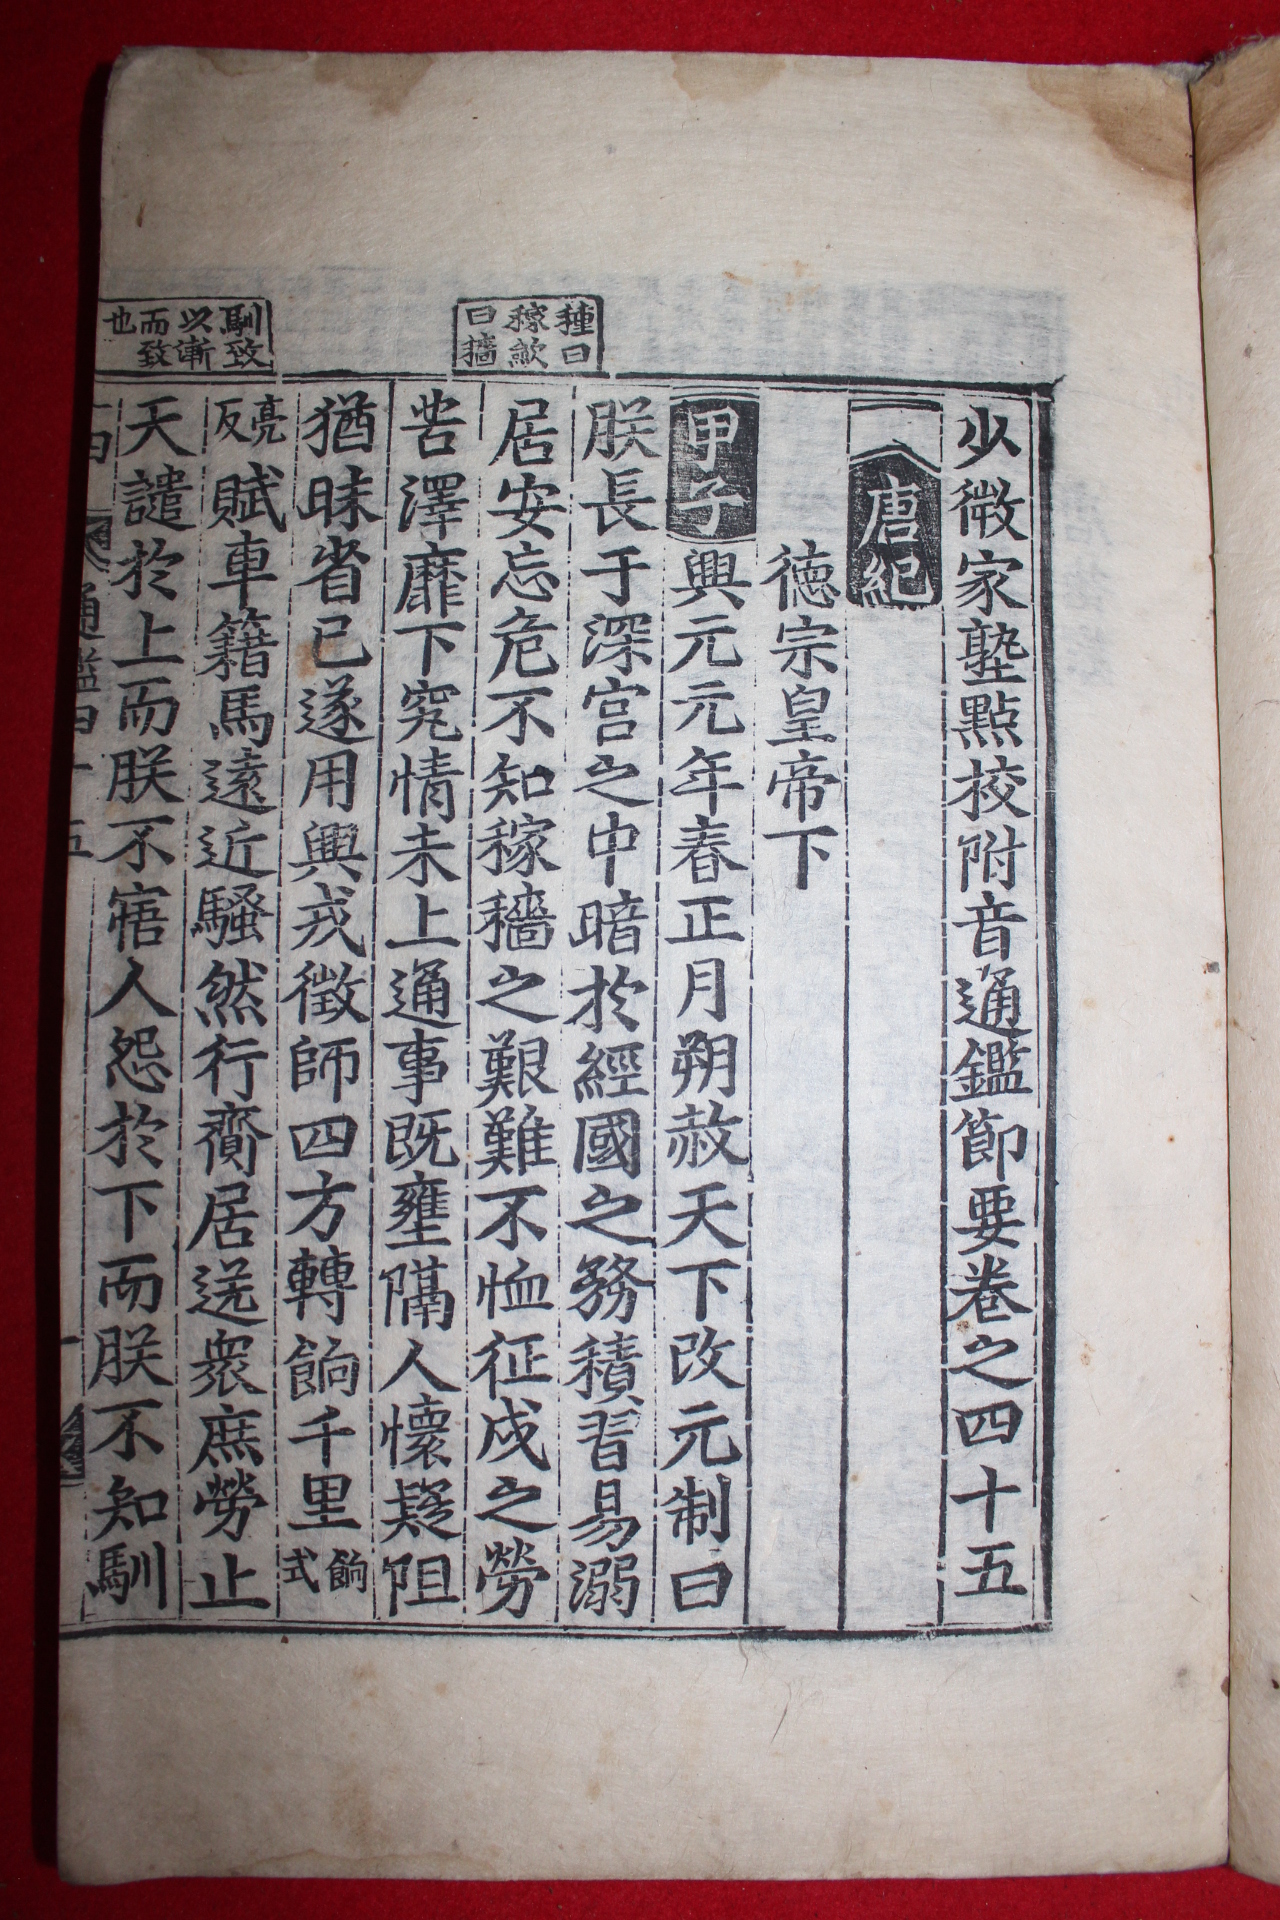 少微家塾點校附音通鑑節要卷之四十五
唐紀
德宗皇帝下
甲子興元元年春正月朔赦天下改元制曰
朕長于深宮之中暗於經國之務積習易溺
種曰稼歛曰穡
居安忘危不知稼穡之艱難不恤征戍之勞
苦澤靡下究情未上通事既壅隔人懷疑阻
猶昧省已遂用興戎徵師四方轉餉千里餉式
亮反賦車籍馬遠近騷然行齎居送衆庶勞止
馴致以漸而致也
天譴於上而朕不寤人怨於下而朕不知馴
通鑑四十五
一